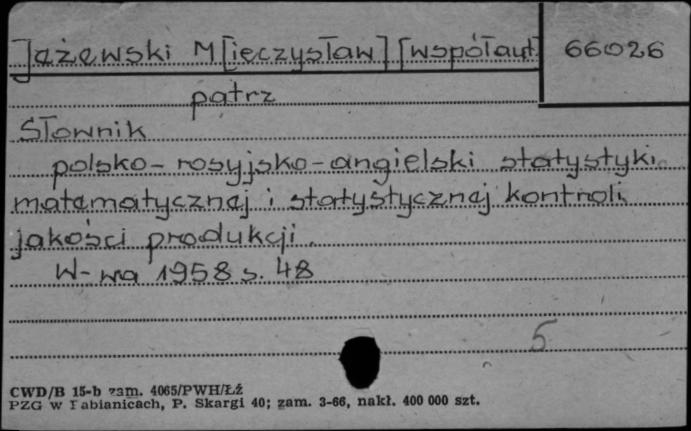 Jażewski M[ieczysław] [współaut.] 66026
patrz
Słownik
polsko-rosyjsko-angielski statystyki
matematycznej i statystycznej kontroli
jakości produkcji.
W-wa 1958 s. 48
5
CWD/B 15-b zam. 4065/PWH/ŁŹ
PZG w Pabianicach, P. Skargi 40; zam. 3-66, nakł. 400 000 szt.